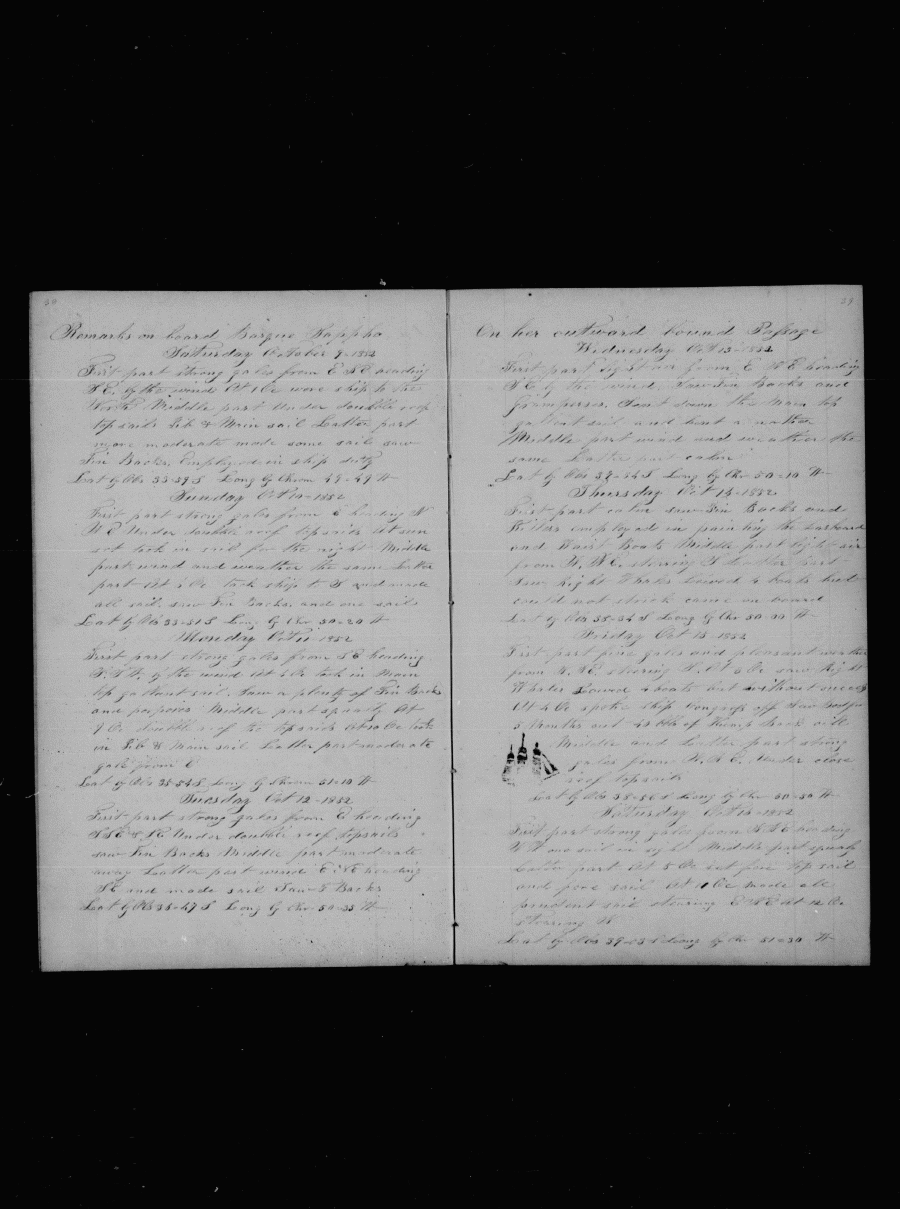 30
Remarks on board Barque Kappha
Satturday October 9-1852
First part strong gales from E S E heading
N E of the wind At 1 Oc wore ship to the
North Middle part Under doubble reef
top sails Jib & Main sail Latter part
more moderate made some sail saw
Fin Backs, Employed in ship duty
Lat by Obs 33-59 S Long by Chrom 49-49 W
Sunday Oct 10-1852
First part strong gales from E heading N
N E Under doubble reef topsails At sun
set took in sail for the night Middle
part wind and weather the same Latter
part At 6 Oc tack ship to S and made
all sail, saw Fin Backs, and one sail
Lat by Obs 33-51 S Long by Chr 50-20 W
Monday Oct 11-1852
First part strong gales from S E heading
of the wind At 6 Oc took in Main
top gallant sail. Saw a plenty of Fin Backs
and porpoises Middle part squally At
9 Oc doubble reef the topsails At 10 Oc took
in Jib & Main sail Latter part moderate
gale from E
Lat by Obs 35-54 S Long by Chrom 51-10 W
Tuesday Oct 12-1852
First part strong gales from E heading
S S E & S E Under doubble reef topsails
saw Fin Backs Middle part moderate
away Latter part wind E N E heading
S E and made sail Saw F Backs
Lat by Obs 36-47 S Long by Chr 50-33 W
29
On her outward bound Passage
Wednesday Oct 13-1852
First part light air from E N E heading
S E of the wind, saw Fin Backs and
Grampuses, Sent down the Main top
gallant sail and bent a nother
Middle part wind and weather the
same Latter part calm
Lat by Obs 37-54 S Long by Chr 50-10 W
Thursday Oct 14-1852
First part calm saw Fin Backs and
Killers employed in painting the Larboard
and Waist Boats Middle part light air
from N. N E. steering S Latter part
Saw Right Whales lowered 4 boats but
could not strick came on board
Lat by Obs 38-34 S Long by Chr 50-30 W
Friday Oct 15-1852
First part fine gales and pleasant weather
from N. N E. steering S. At 2 Oc saw Right
Whales Lowered 4 boats but without success
At 4 Oc spoke ship Congress off New Bedford
5 Months out 40 bbls of Hump Back oill
Middle and Latter part strong
gales from N. N E. Under close
reef topsails
Lat by Obs 38-56 S Long by Chr 50-50 W
Satturday Oct 16-1852
First part strong gales from N N E heading
N W one sail in sight Middle part squaly
Latter part At 5 Oc set fore top sail
and fore sail At 11 Oc made all
prudent sail steering E S E At 12 Oc
steering N
Lat by Obs 39-23 S Long by Chr 51-30 W